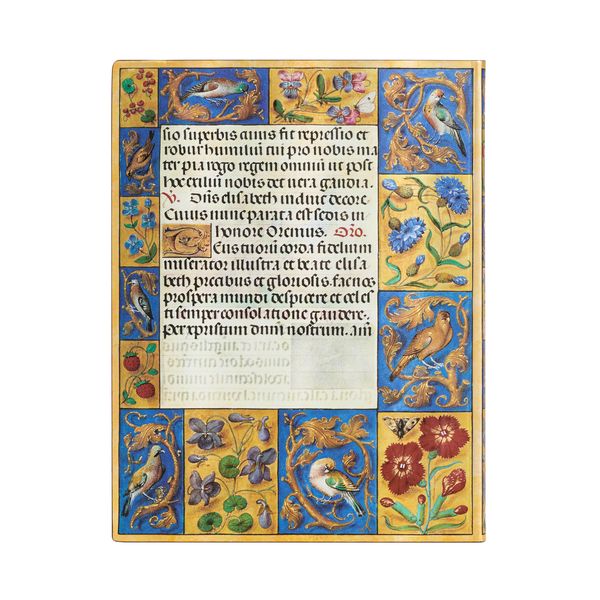 sio superbis cuius fit repressio et
robur humiliū tu pro nobis ma
ter pia rogo regem omniū ut post
hoc exiliū nobis det vera gaudia.
V. Dn̄s elisabeth induit decore.
Cuius nunc parata est sedis in
honore Oremus. Oro.
Deus tuorū corda fidelium
miserator illustra et beate elisa
beth precibus et gloriosis. fac nos
prospera mundi despicere et celes
ti semper consolatione gaudere.
Per xpristum dnm̄ nostrum. am̄